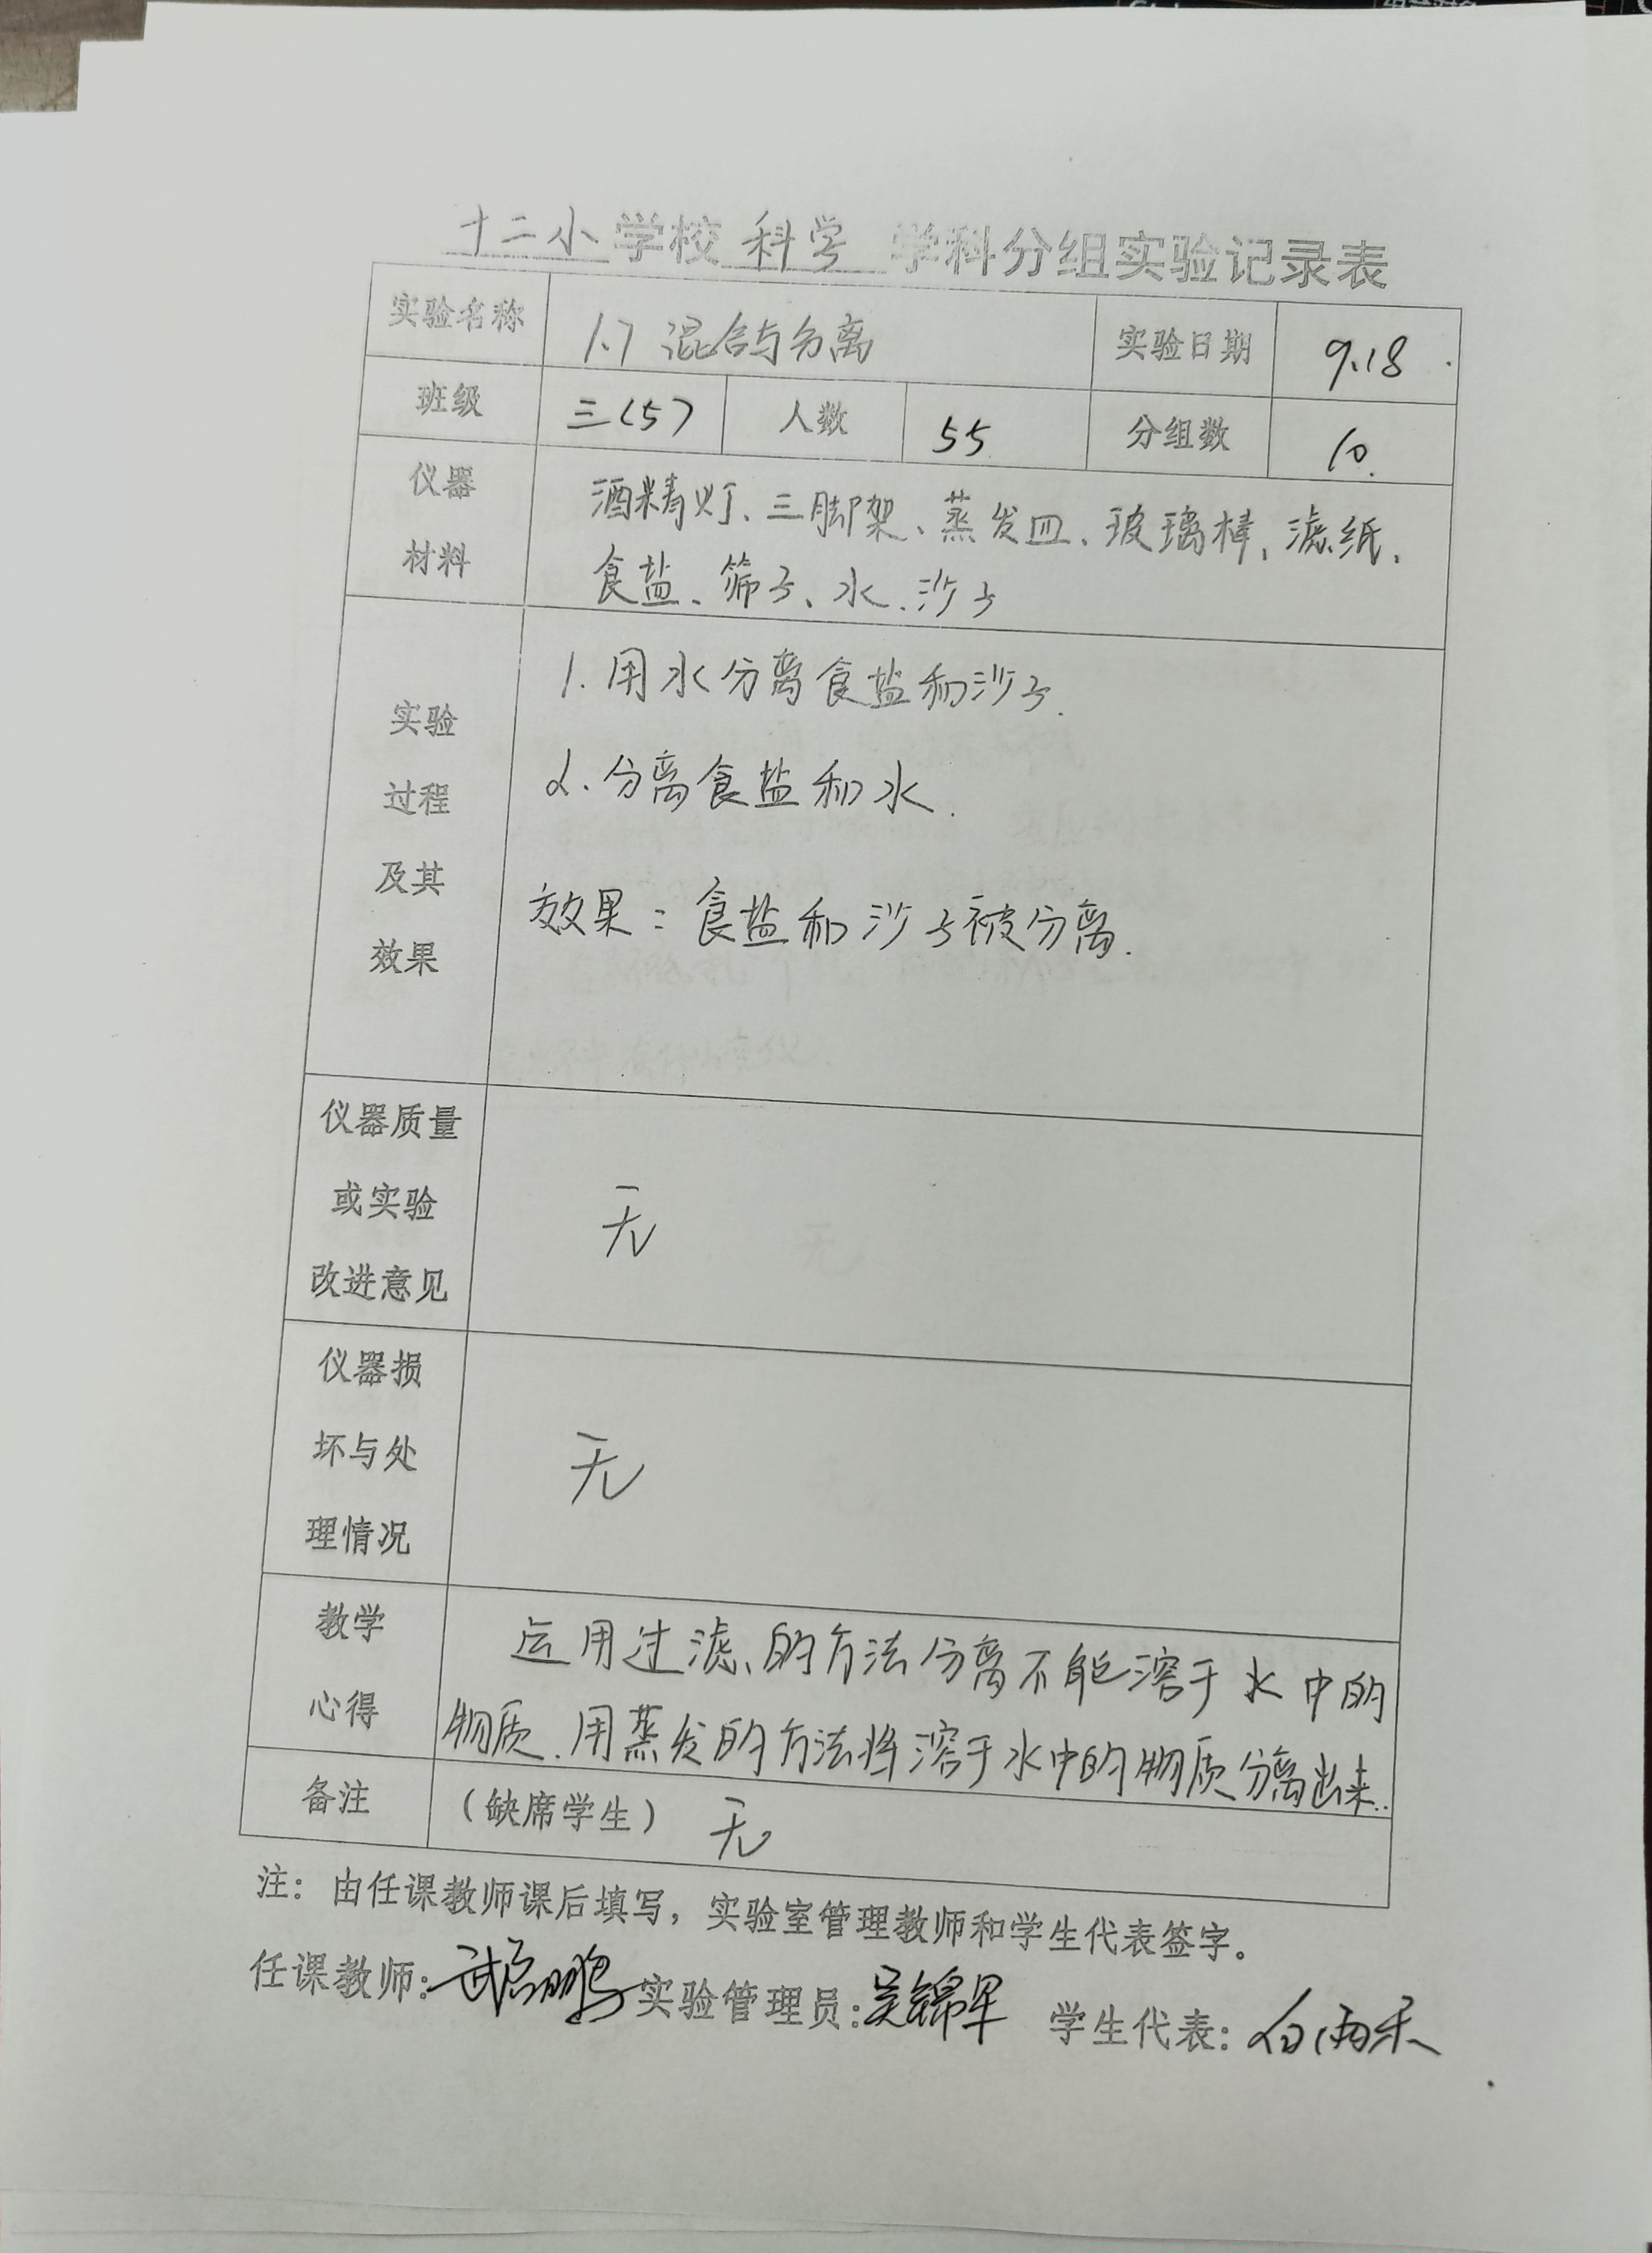 十二小学校 科学 学科分组实验记录表
实验名称 1.7 混合与分离 实验日期 9.18
班级 三(5) 人数 55 分组数 10.
仪器 酒精灯、三脚架、蒸发皿、玻璃棒、滤纸、
材料 食盐、筛子、水、沙子
1.用水分离食盐和沙子.
实验
2.分离食盐和水.
过程
及其
效果：食盐和沙子被分离.
效果
仪器质量
或实验 无
改进意见
仪器损
坏与处 无
理情况
教学 运用过滤的方法分离不能溶于水中的
心得 物质.用蒸发的方法将溶于水中的物质分离出来.
备注 （缺席学生） 无
注：由任课教师课后填写，实验室管理教师和学生代表签字。
任课教师: 实验管理员:吴锦军 学生代表:白雨禾